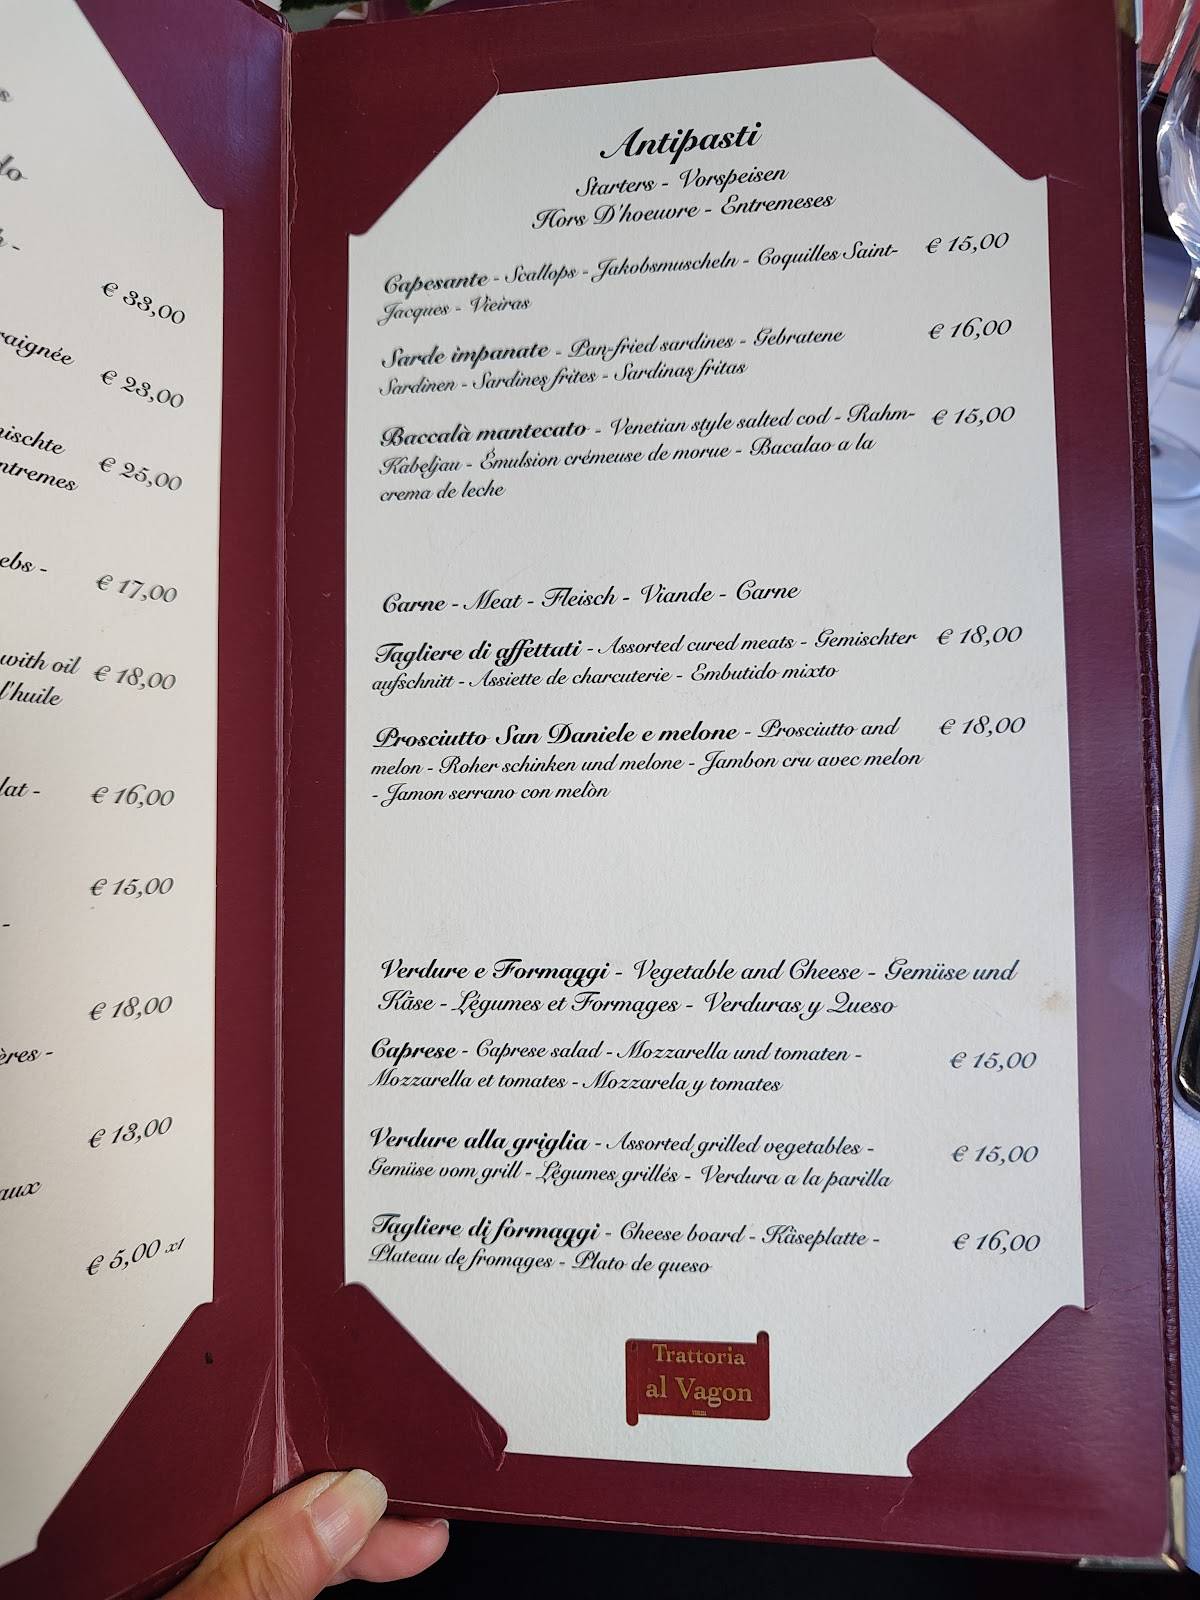 € 33,00
raignée
€ 23,00
€ 25,00
€ 17,00
with oil
€ 18,00
l'huile
€ 16,00
€ 15,00
€ 18,00
€ 13,00
€ 5,00 x1
Antipasti
Starters - Vorspeisen
Hors D'hoeuvre - Entremeses
Capesante - Scallops - Jakobsmuscheln - Coquilles Saint- € 15,00
Jacques - Vieiras
Sarde impanate - Pan-fried sardines - Gebratene € 16,00
Sardinen - Sardines frites - Sardinas fritas
Baccalà mantecato - Venetian style salted cod - Rahm- € 15,00
Kabeljau - Émulsion crémeuse de morue - Bacalao a la
crema de leche
Carne - Meat - Fleisch - Viande - Carne
Tagliere di affettati - Assorted cured meats - Gemischter € 18,00
aufschnitt - Assiette de charcuterie - Embutido mixto
Prosciutto San Daniele e melone - Prosciutto and € 18,00
melon - Roher schinken und melone - Jambon cru avec melon
- Jamon serrano con melòn
Verdure e Formaggi - Vegetable and Cheese - Gemüse und
Käse - Légumes et Formages - Verduras y Queso
Caprese - Caprese salad - Mozzarella und tomaten - € 15,00
Mozzarella et tomates - Mozzarela y tomates
Verdure alla griglia - Assorted grilled vegetables - € 15,00
Gemüse vom grill - Légumes grillés - Verdura a la parilla
Tagliere di formaggi - Cheese board - Käseplatte - € 16,00
Plateau de fromages - Plato de queso
Trattoria
al Vagon